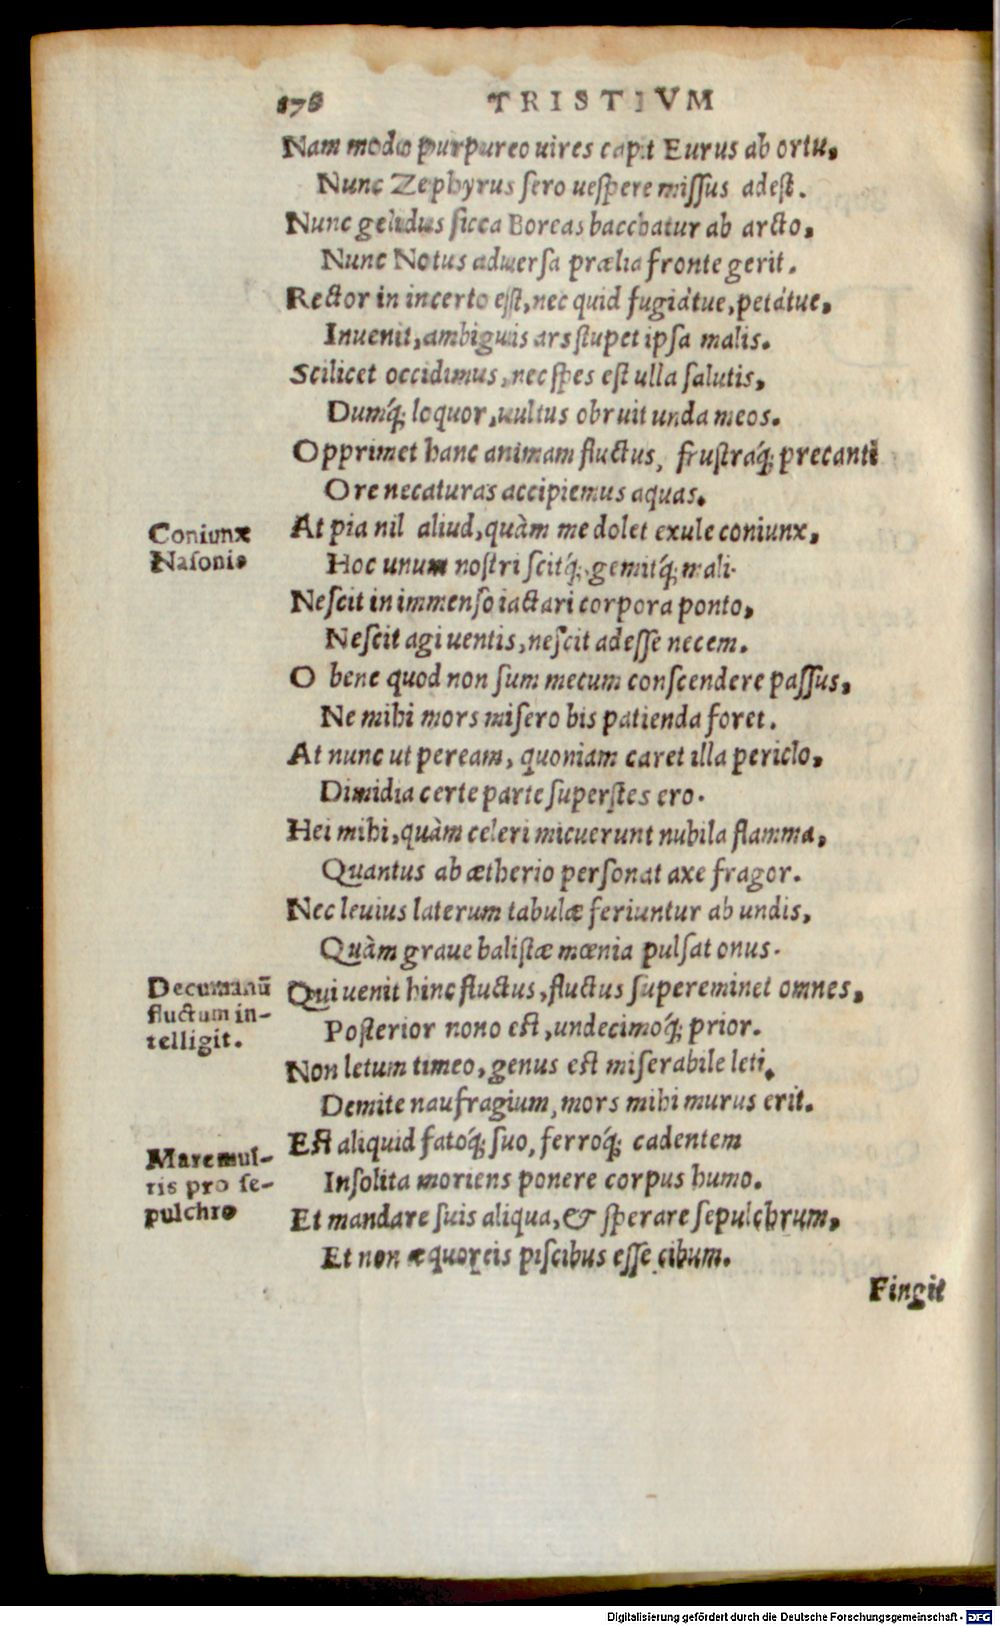 176 TRISTIVM
Nam modo purpureo uires capit Eurus ab ortu,
Nunc Zephyrus sero uespere missus adest.
Nunc gelidus sicca Boreas bacchatur ab arcto,
Nunc Notus aduersa prælia fronte gerit.
Rector in incerto est, nec quid fugiátue, petátue,
Inuenit, ambiguis ars stupet ipsa malis.
Scilicet occidimus, nec spes est ulla salutis,
Dumq́; loquor, uultus obruit unda meos.
Opprimet hanc animam fluctus, frustraq́; precanti
Ore necaturas accipiemus aquas.
Coniunx
Nasonis
At pia nil aliud, quàm me dolet exule coniunx,
Hoc unum nostri scitq́;, gemitq́; mali.
Nescit in immenso iactari corpora ponto,
Nescit agi uentis, nescit adesse necem.
O bene quod non sum mecum conscendere passus,
Ne mihi mors misero bis patienda foret.
At nunc ut peream, quoniam caret illa periclo,
Dimidia certe parte superstes ero.
Hei mihi, quàm celeri micuerunt nubila flamma,
Quantus ab ætherio personat axe fragor.
Nec leuius laterum tabulæ feriuntur ab undis,
Quàm graue balistæ mœnia pulsat onus.
Decumanū
fluctum in-
telligit.
Qui uenit hinc fluctus, fluctus supereminet omnes,
Posterior nono est, undecimoq́; prior.
Non letum timeo, genus est miserabile leti,
Demite naufragium, mors mihi murus erit.
Est aliquid fatoq́; suo, ferroq́; cadentem
Mare mul-
tis pro se-
pulchro
Insolita moriens ponere corpus humo.
Et mandare suis aliqua, & sperare sepulchrum,
Et non æquoreis piscibus esse cibum.
Fingit
Digitalisierung gefördert durch die Deutsche Forschungsgemeinschaft - DFG